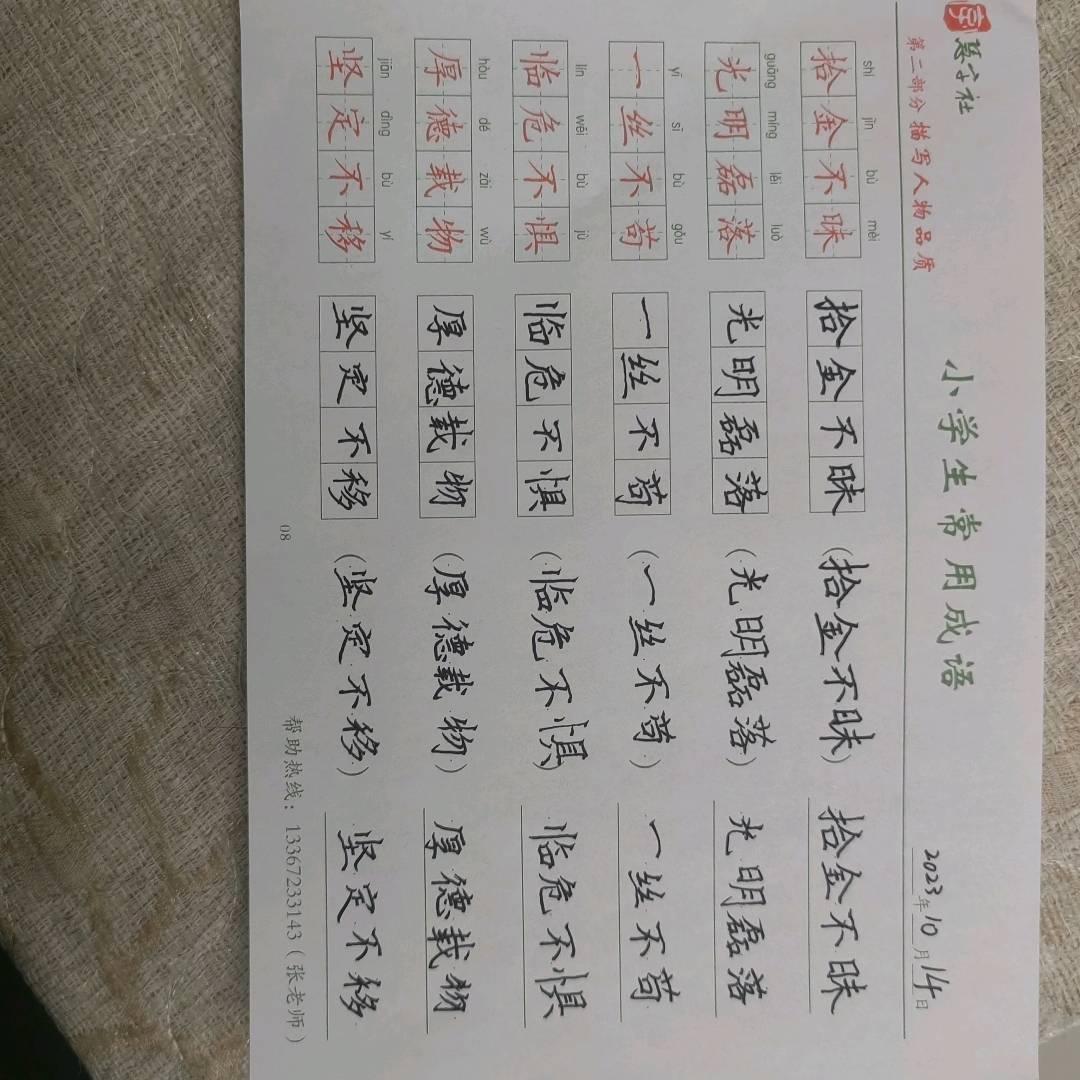 慧字社 小学生常用成语
第二部分 描写人物品质 2023年10月14日
shí jīn bù mèi
拾金不昧 拾金不昧 (拾金不昧) 拾金不昧
guāng míng lěi luò
光明磊落 光明磊落 (光明磊落) 光明磊落
yī sī bù gǒu
一丝不苟 一丝不苟 (一丝不苟) 一丝不苟
lín wēi bù jù
临危不惧 临危不惧 (临危不惧) 临危不惧
hòu dé zài wù
厚德载物 厚德载物 (厚德载物) 厚德载物
jiān dìng bù yí
坚定不移 坚定不移 (坚定不移) 坚定不移
08 帮助热线：13367233143（张老师）